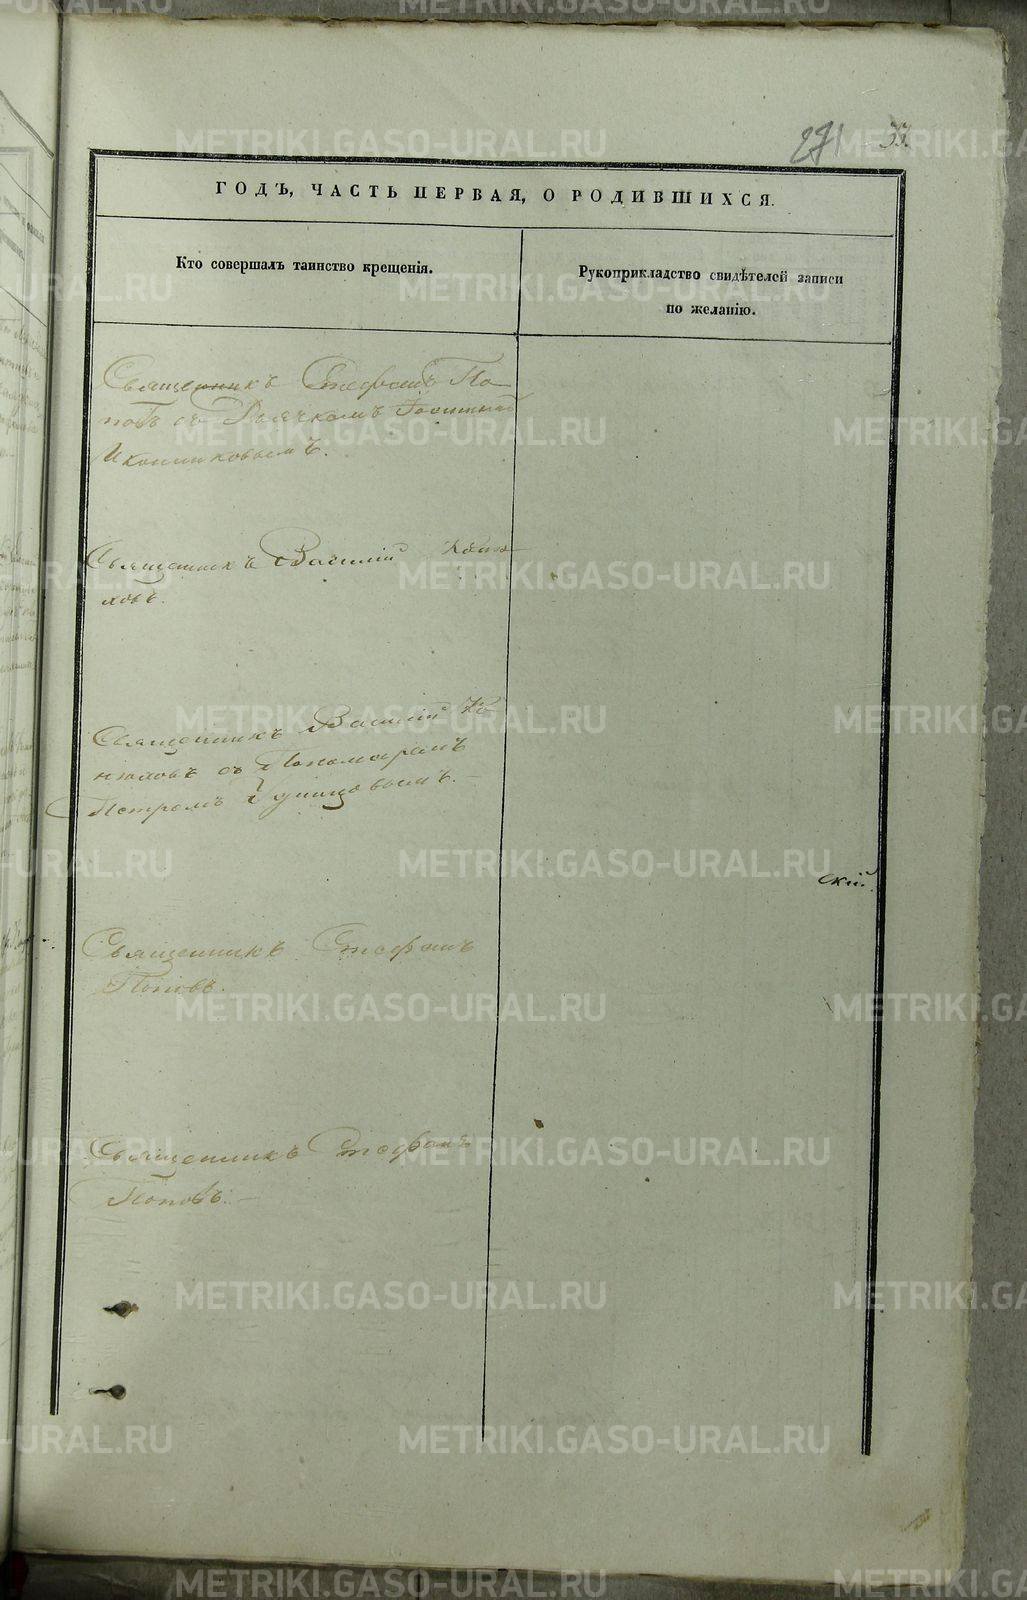 271 33.
ГОДЪ, ЧАСТЬ ПЕРВАЯ, О РОДИВШИХСЯ.
Кто совершалъ таинство крещенія.
Рукоприкладство свидѣтелей записи
по желанію.
Священникъ Стефанъ По-
повъ съ Дьячкомъ
Иконниковымъ.
Священникъ Василій Коню-
ховъ.
Священникъ Василій Ко-
нюховъ съ Пономаремъ
Петромъ
ский.
Священникъ Стефанъ
Поповъ.
Священникъ Стефанъ
Поповъ.
METRIKI.GASO-URAL.RU